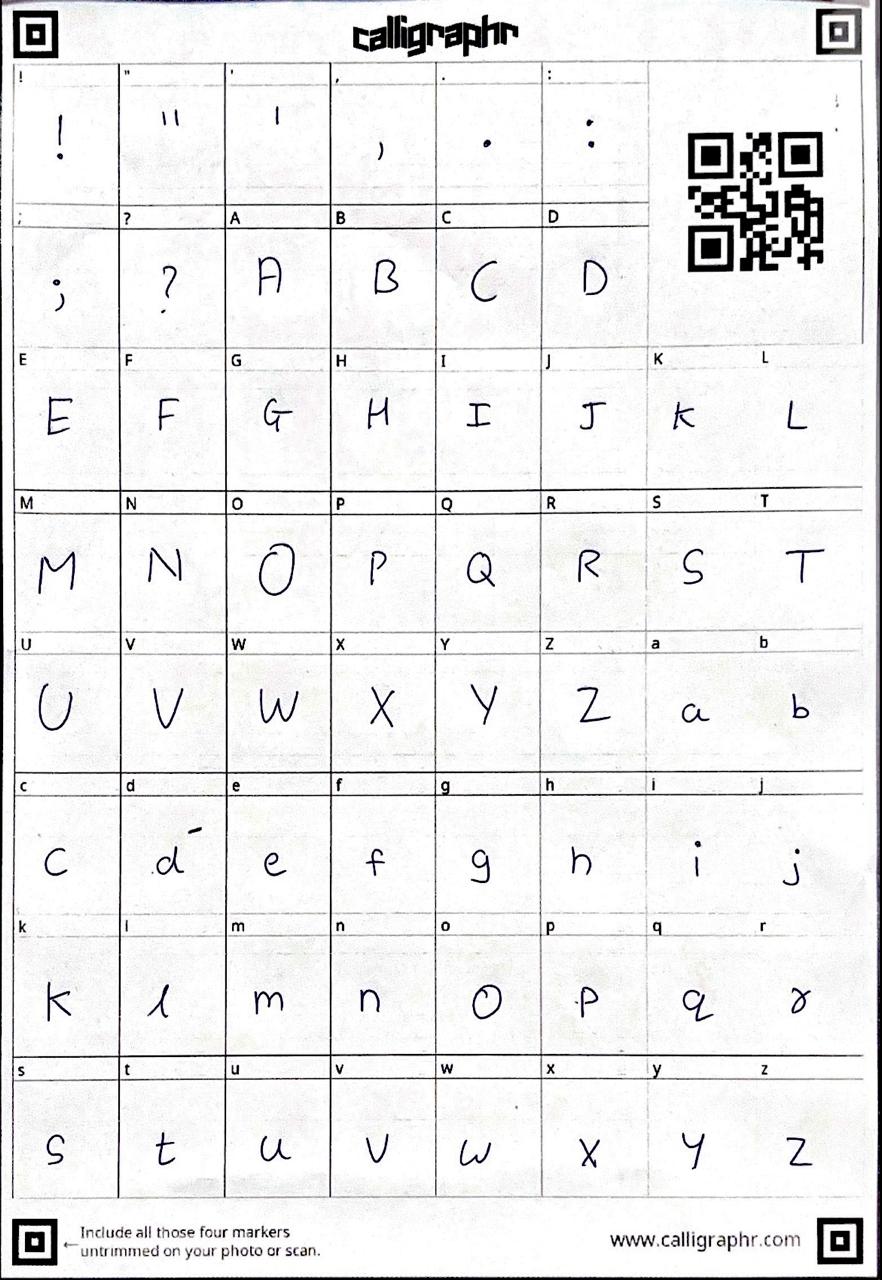 calligraphr
! " ' , . :
! " ' , . :
; ? A B C D
; ? A B C D
E F G H I J K L
E F G H I J K L
M N O P Q R S T
M N O P Q R S T
U V W X Y Z a b
U V W X Y Z a b
c d e f g h i j
c d e f g h i j
k l m n o p q r
k l m n o p q r
s t u v w x y z
s t u v w x y z
← Include all those four markers
untrimmed on your photo or scan.
www.calligraphr.com